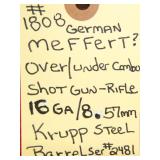 #
1808 German
Meffert?
Over/under Combo
Shot Gun-Rifle
16 GA/8.57mm
Krupp Steel
Barrel Ser#2481